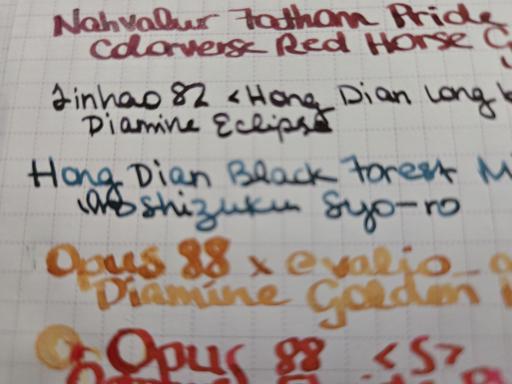 Nahvalur Tatham Pride
Colorverse Red Horse
Jinhao 82 < Hong Dian Long
Diamine Eclipse
Hong Dian Black Forest M
Iroshizuku Syo-ro
Opus 88 x evalio
Diamine Golden
Opus 88 <S>